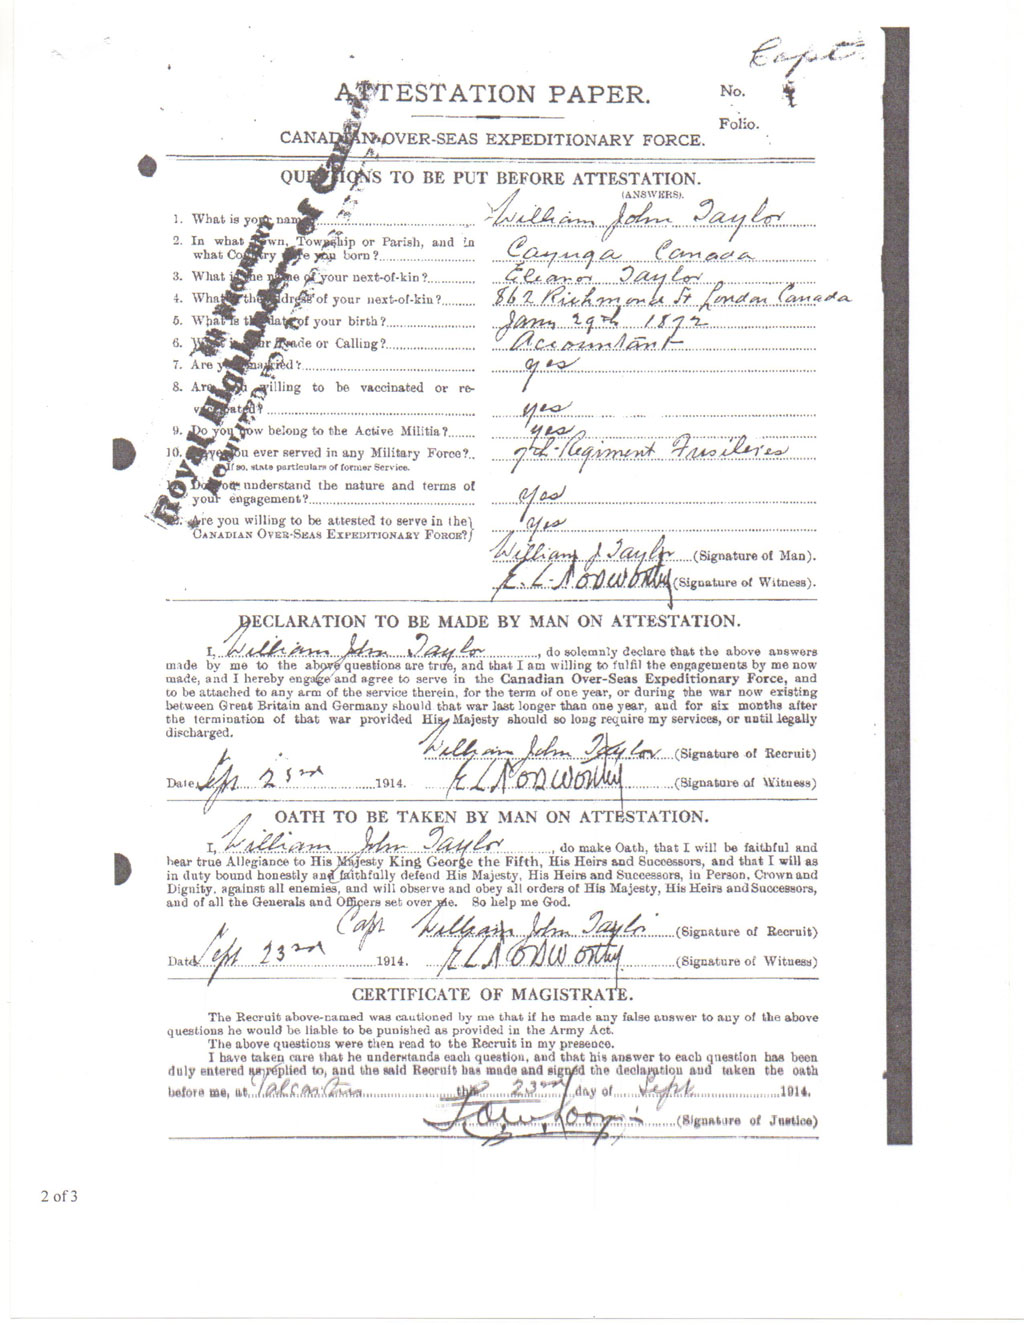 Capt.
ATTESTATION PAPER.
No.
Folio.
CANADIAN OVER-SEAS EXPEDITIONARY FORCE.
QUESTIONS TO BE PUT BEFORE ATTESTATION.
(ANSWERS).
1. What is your name? William John Taylor
2. In what Town, Township or Parish, and in
what Country were you born? Cayuga Canada
3. What is the name of your next-of-kin? Eleanor Taylor
4. What is the address of your next-of-kin? 862 Richmond St London Canada
5. What is the date of your birth? Jany 29th 1872
6. What is your Trade or Calling? Accountant
7. Are you married? yes
8. Are you willing to be vaccinated or re-
vaccinated? yes
9. Do you now belong to the Active Militia? yes
10. Have you ever served in any Military Force? 7th Regiment Fusiliers
If so, state particulars of former Service.
11. Do you understand the nature and terms of
your engagement? Yes
12. Are you willing to be attested to serve in the
CANADIAN OVER-SEAS EXPEDITIONARY FORCE? Yes
5th REGIMENT
Royal Highlanders of Canada
William J. Taylor (Signature of Man).
E. L. Nodworthy (Signature of Witness).
DECLARATION TO BE MADE BY MAN ON ATTESTATION.
I, William John Taylor, do solemnly declare that the above answers
made by me to the above questions are true, and that I am willing to fulfil the engagements by me now
made, and I hereby engage and agree to serve in the Canadian Over-Seas Expeditionary Force, and
to be attached to any arm of the service therein, for the term of one year, or during the war now existing
between Great Britain and Germany should that war last longer than one year, and for six months after
the termination of that war provided His Majesty should so long require my services, or until legally
discharged.
William John Taylor (Signature of Recruit)
Date Sept 23rd 1914. E L Nodworthy (Signature of Witness)
OATH TO BE TAKEN BY MAN ON ATTESTATION.
I, William John Taylor, do make Oath, that I will be faithful and
bear true Allegiance to His Majesty King George the Fifth, His Heirs and Successors, and that I will as
in duty bound honestly and faithfully defend His Majesty, His Heirs and Successors, in Person, Crown and
Dignity, against all enemies, and will observe and obey all orders of His Majesty, His Heirs and Successors,
and of all the Generals and Officers set over me. So help me God.
Capt William John Taylor (Signature of Recruit)
Date Sept 23rd 1914. E L Nodworthy (Signature of Witness)
CERTIFICATE OF MAGISTRATE.
The Recruit above-named was cautioned by me that if he made any false answer to any of the above
questions he would be liable to be punished as provided in the Army Act.
The above questions were then read to the Recruit in my presence.
I have taken care that he understands each question, and that his answer to each question has been
duly entered as replied to, and the said Recruit has made and signed the declaration and taken the oath
before me, at Valcartier this 23rd day of Sept 1914.
(Signature of Justice)
2 of 3